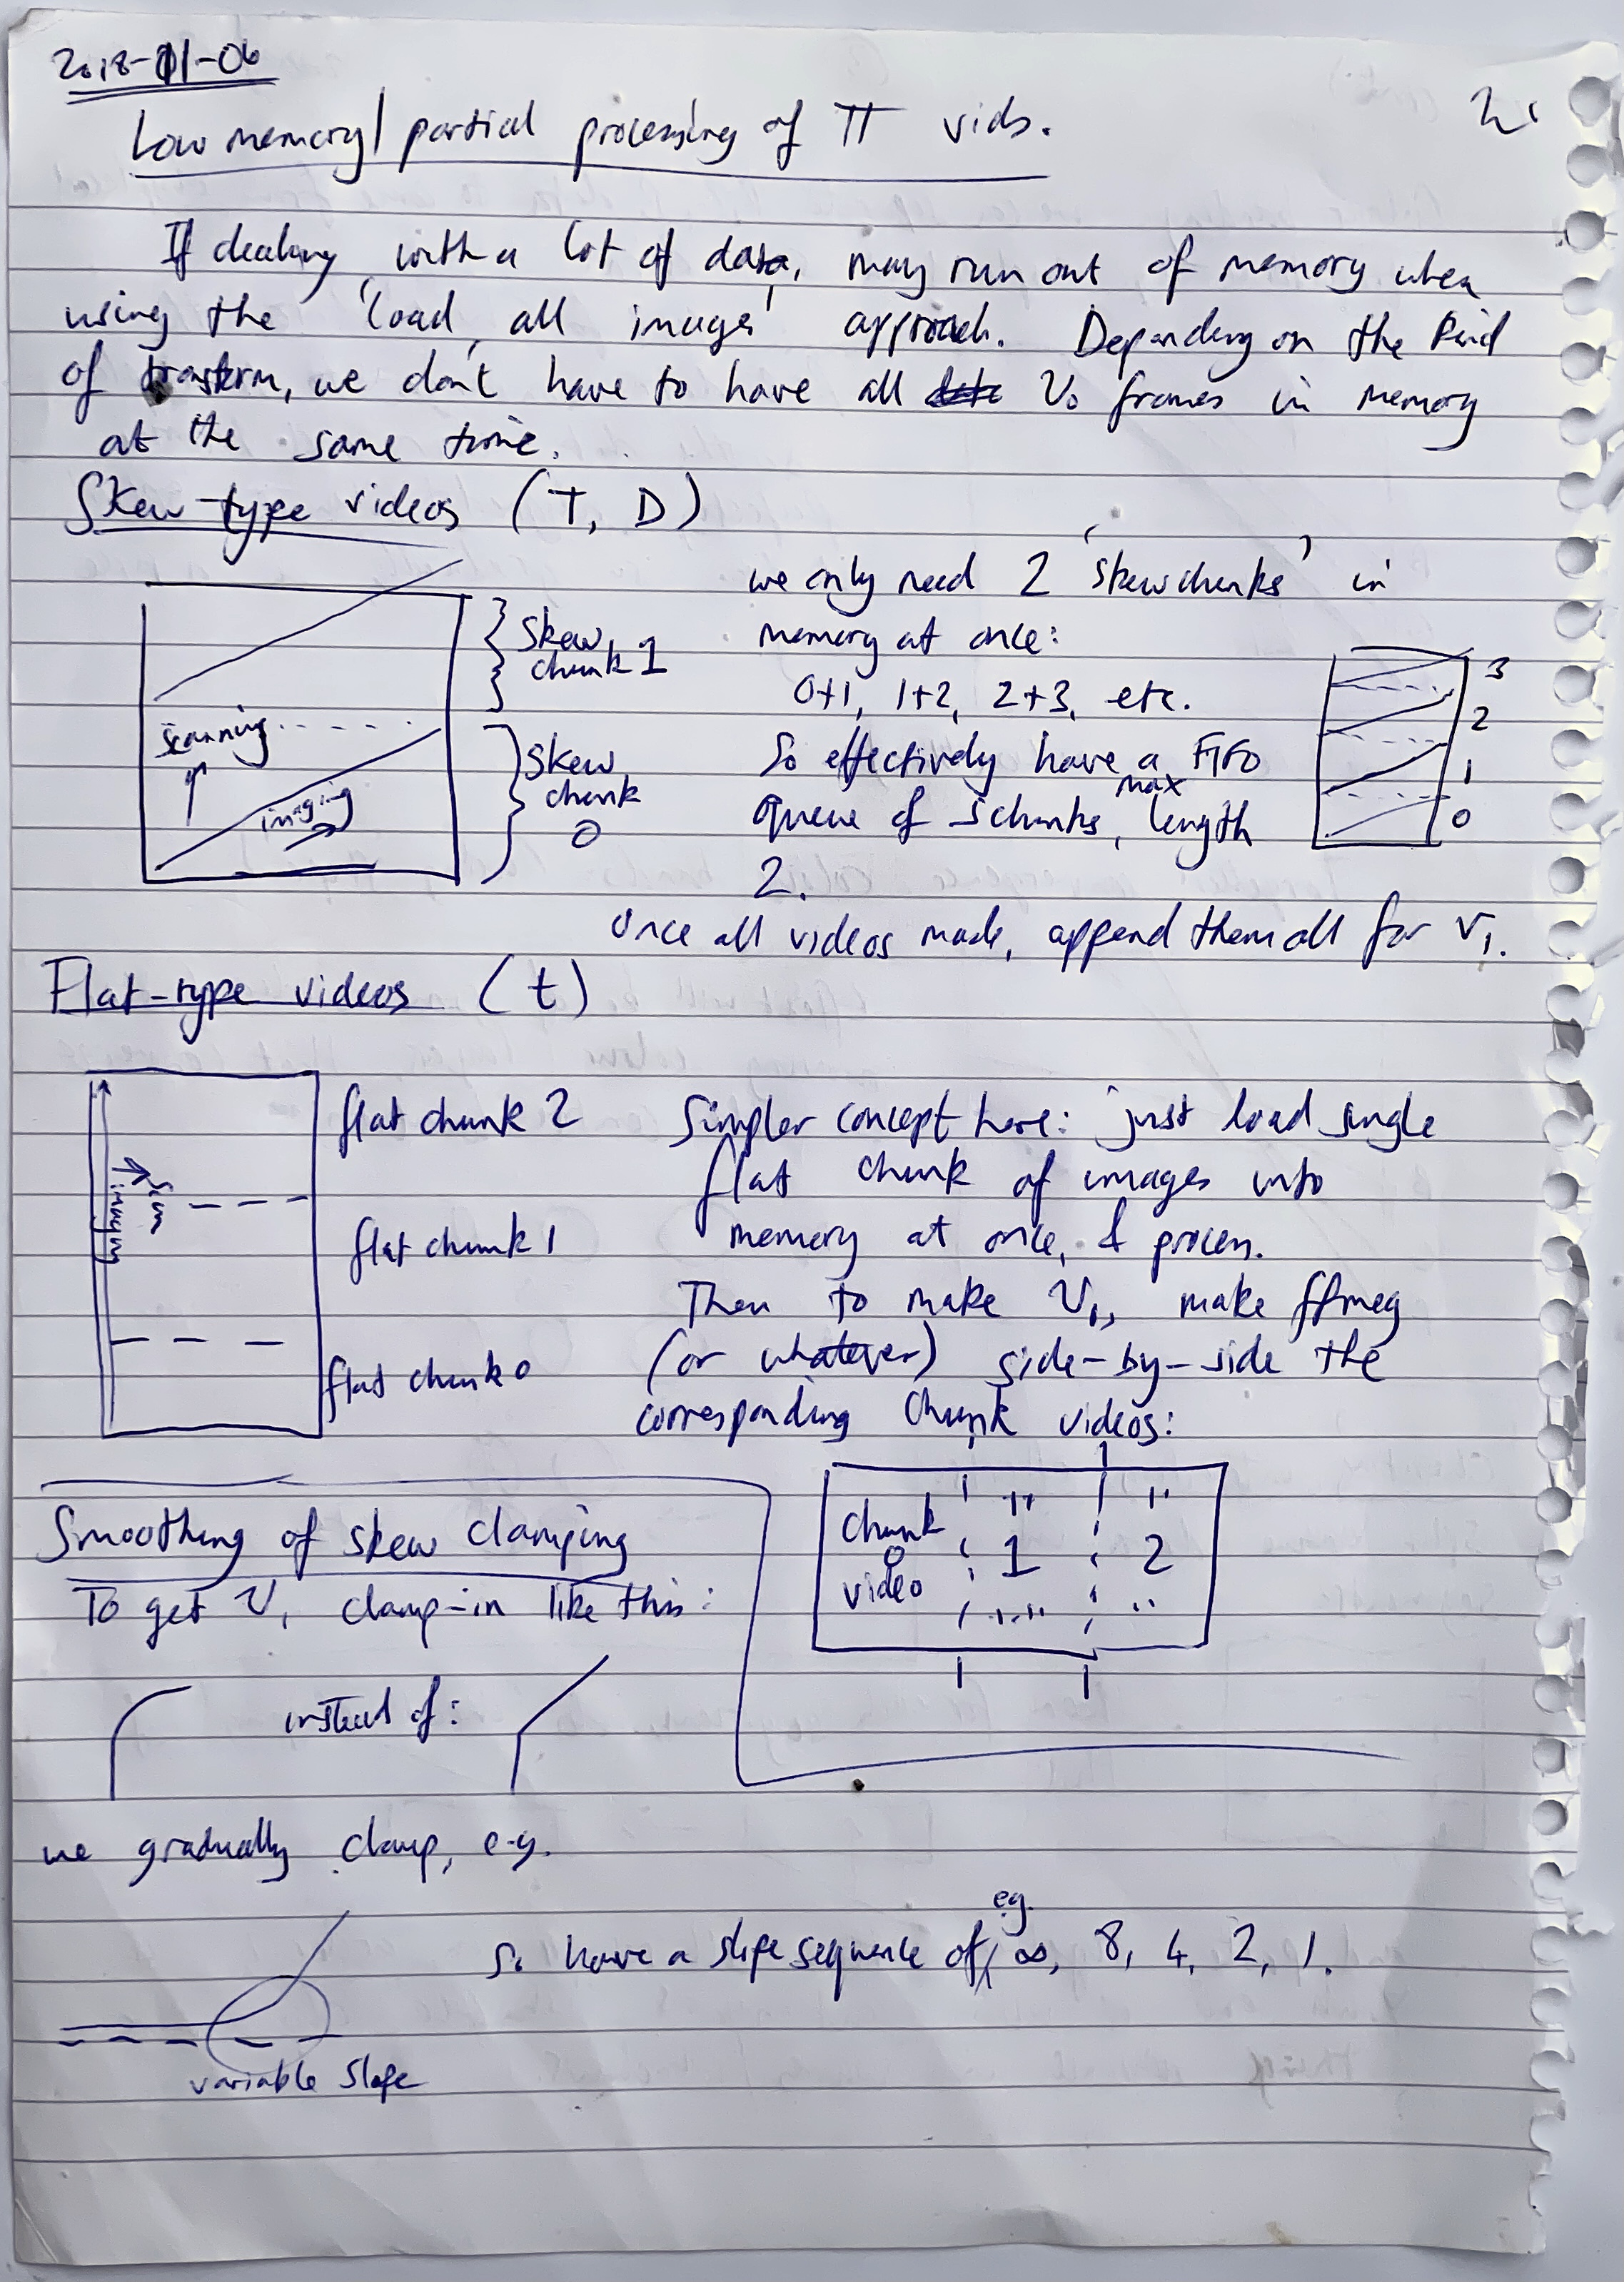 2018-11-06
Low memory/partial processing of TT vids.
If dealing with a lot of data, may run out of memory when
using the 'load all images' approach. Depending on the kind
of transform, we don't have to have all V₀ frames in memory
at the same time.
Skew-type videos (T, D)
scanning
imaging
Skew chunk 1
Skew chunk 0
we only need 2 'skew chunks' in
memory at once:
0+1, 1+2, 2+3, etc.
So effectively have a FIFO
queue of schunks, max length
2.
3
2
1
0
Once all videos made, append them all for V₁.
Flat-type videos (t)
scan
imaging
flat chunk 2
flat chunk 1
flat chunk 0
Simpler concept here: just load single
flat chunk of images into
memory at once, & process.
Then to make V₁, make ffmeg
(or whatever) side-by-side the
corresponding chunk videos:
chunk 0 video
" 1 "
" 2 "
Smoothing of skew clamping
To get V, clamp-in like this:
instead of:
we gradually clamp, e.g.
variable slope
So have a slope sequence of, eg. ∞, 8, 4, 2, 1.